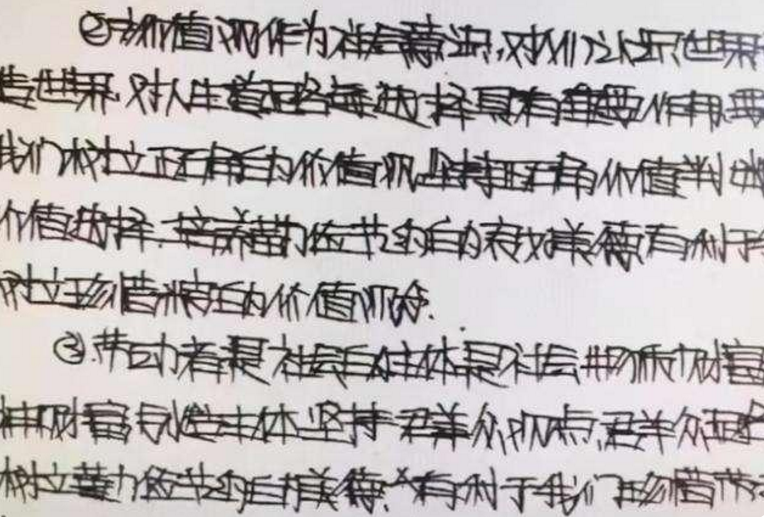 ②价值观作为社会意识,对人们认识世界
造世界,对人生道路选择具有重要作用,要
我们树立正确的价值观,坚持正确价值判断
价值选择.培养勤俭节约的良好美德有利于
树立珍惜粮食的价值观念.
③.劳动者是社会的主体是社会物质财富
神财富创造主体 坚持群众观点,群众路
树立勤俭节约的美德,有利于我们珍惜劳